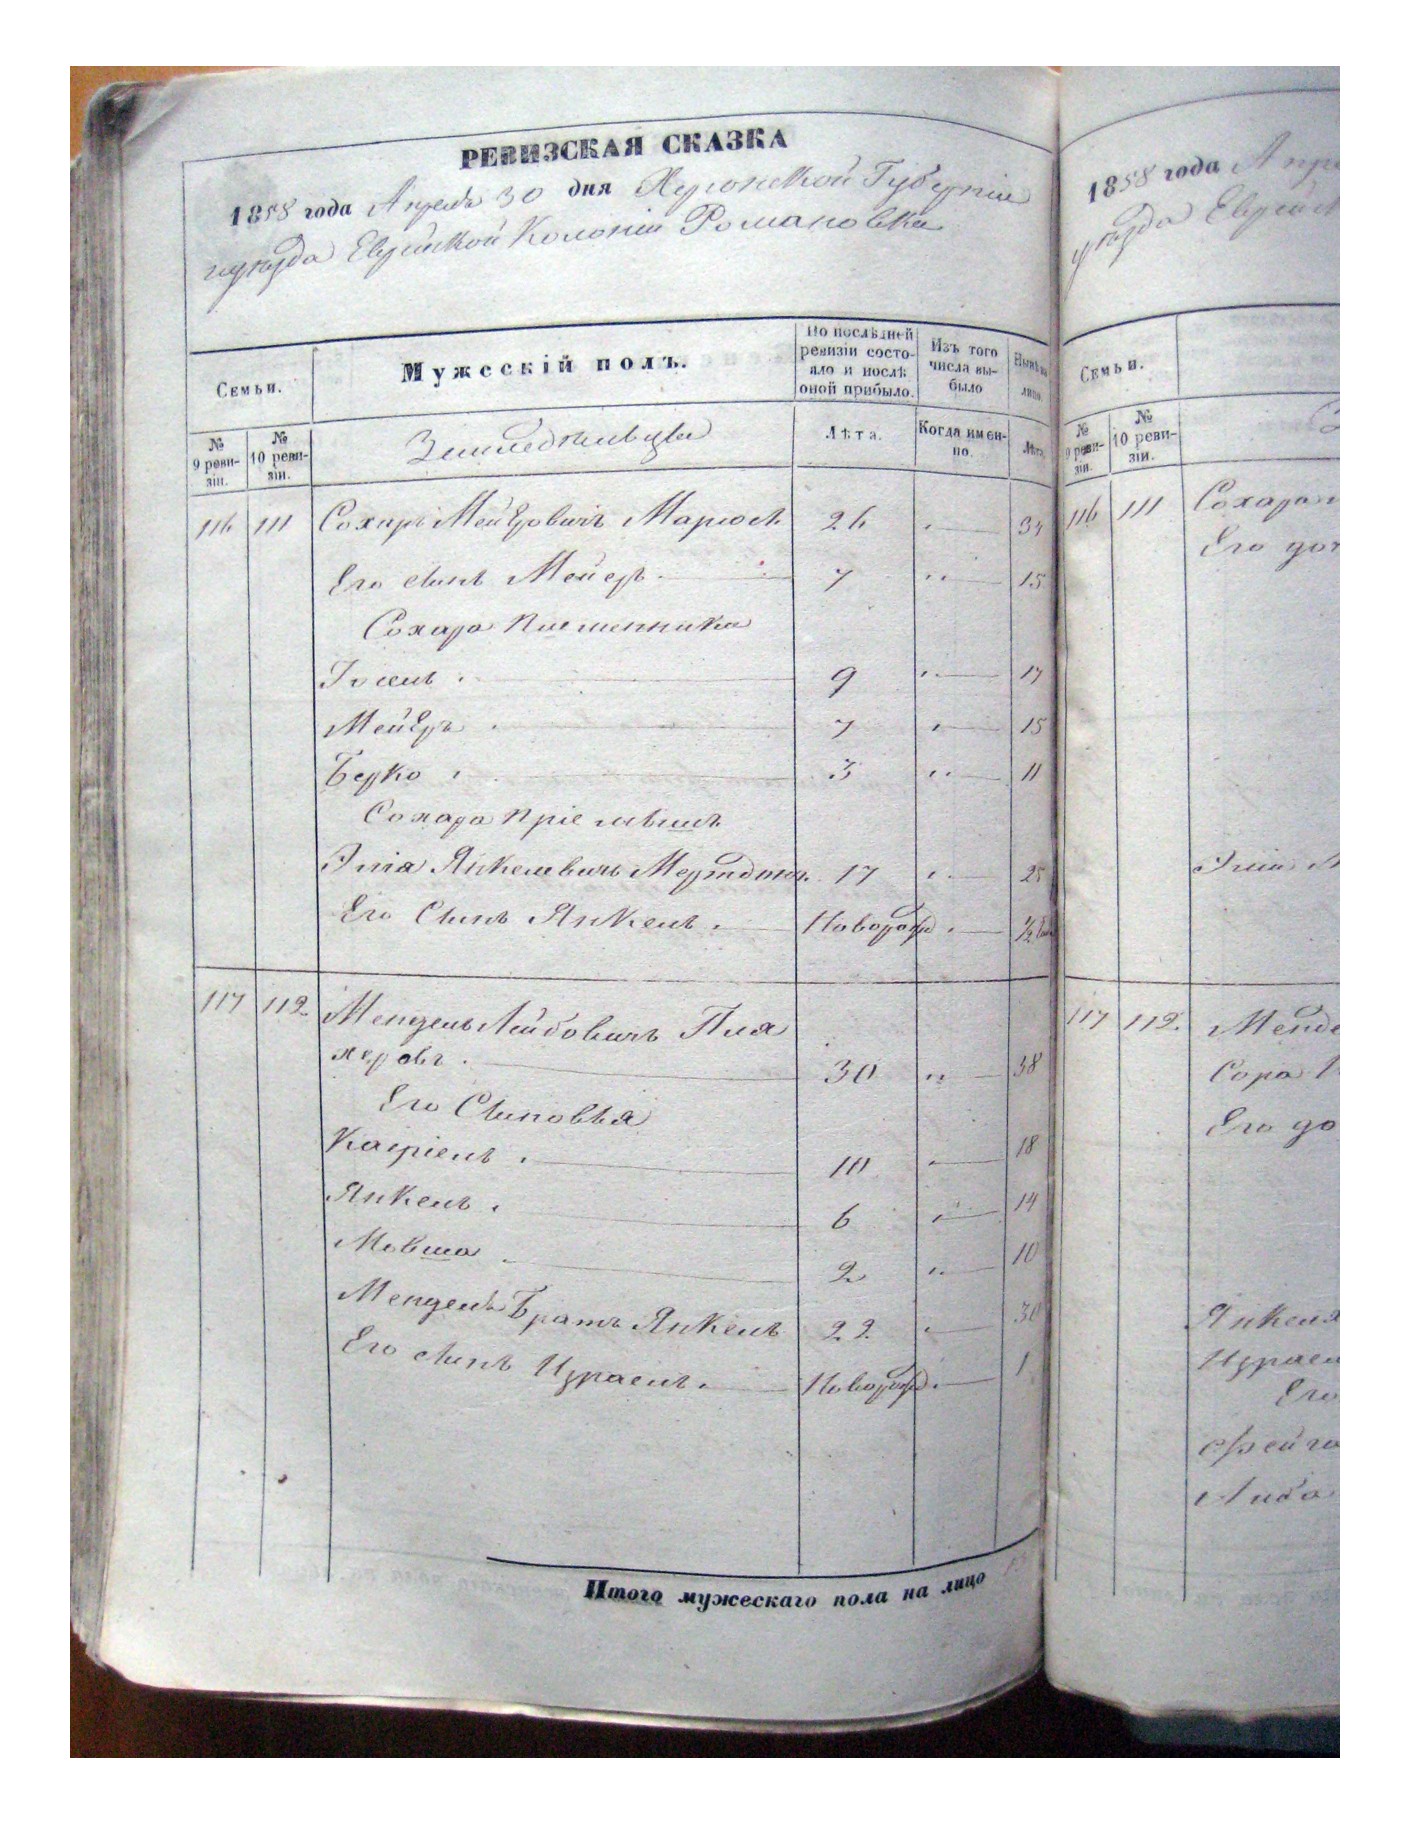 РЕВИЗСКАЯ СКАЗКА
1858 года Апреля 30 дня Херсонской Губерніи
уезда Еврейской Колоніи Романовки
Семьи.
Мужескій полъ.
По послѣдней ревизіи состояло и послѣ оной прибыло.
Изъ того числа выбыло
Нынѣ на лицо.
№ 9 ревизіи.
№ 10 ревизіи.
Земледельцы
Лѣта.
Когда именно.
Лѣта
116 111 Сохаръ Мейеровичъ 26 34
Его сынъ Мейеръ 7 15
Сохара племенники
Іосель 9 17
Мейеръ 7 15
Берко 3 11
Сохара пріемышъ
Элія Янкелевичъ 17 25
Его Сынъ Янкель Новорож 1/2
117 112 Мендель Лейбовичъ Пля
херовъ 30 38
Его Сыновья
Касріель 10 18
Янкель 6 14
Мовша 2 10
Менделя Братъ Янкель 22 30
Его сынъ Израель Новорож 1
Итого мужескаго пола на лицо 13
1858 года
Еврейск
Семьи.
№ 9 ревизіи.
№ 10 ревизіи.
116 111 Сохара
Его доч
Элія М
117 112 Менде
Сора
Его до
Янкеля
Израел
Его
Фейга
Либа